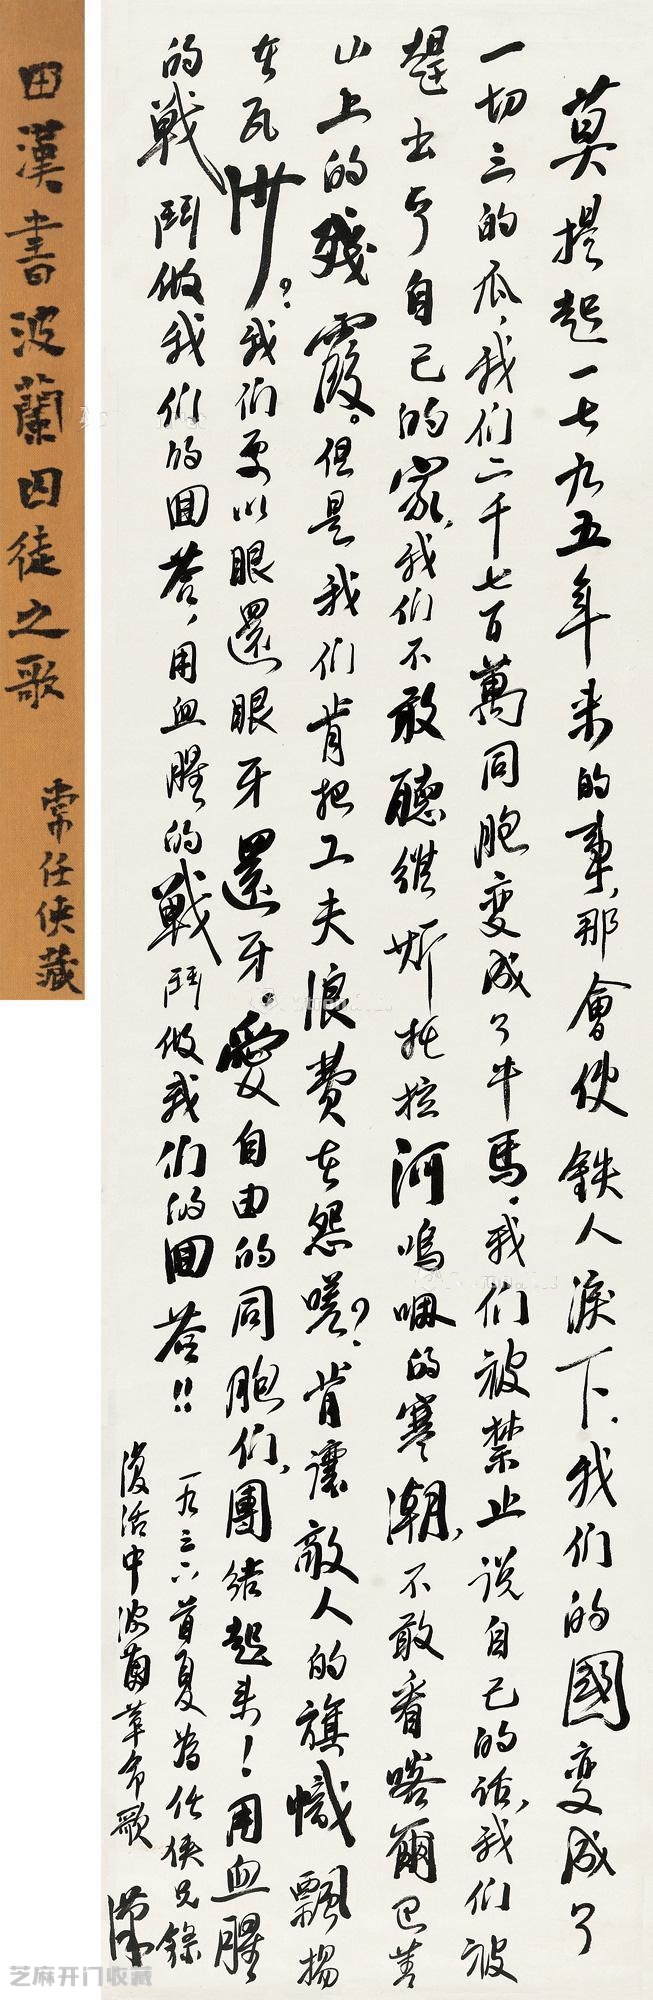 莫提起一七九五年来的事，那會使鉄人淚下，我们的國变成了
一切三的瓜，我们二千七百萬同胞变成了牛馬。我们被禁止说自己的话，我们被
趕出了自己的家，我们不敢聽維斯托拉河嗚咽的寒潮，不敢看喀爾巴苦
山上的殘霞。但是我们肯把工夫浪費在怨嗟？肯讓敵人的旗幟飄揚
在瓦沙？我们要以眼還眼牙還牙。愛自由的同胞们，團结起来！用血腥
的戰鬥做我们的回荅，用血腥的戰鬥做我们的回荅!!
一九三六首夏為任俠兄錄
復活中波蘭革命歌 漢
田漢書波蘭囚徒之歌
常任俠藏
芝麻开门收藏